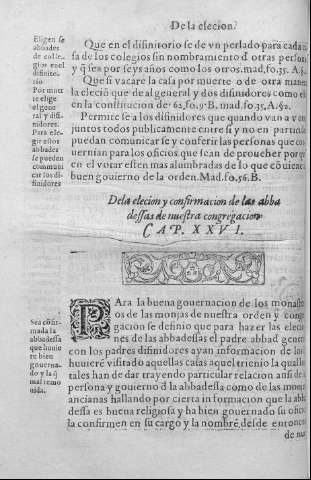 De la elecion.
Eligen se
abbades
de cole-
gios en el
difinito-
rio
Por muer
te elige
el gene
ral y difi-
nidores.
Para ele-
gir estos
abbades
se pueden
communi
car los di-
finidores
Que en el difinitorio se de vn perlado para cada
sa de los colegios sin nombramiento d otras person
y q̃ sea por seys años como los otros. mad. fo. 35. A. §.
Que si vacare la casa por muerte o de otra maner
la eleció que de al general y dos difinidores como est
en la constitucion de 62, fo. 9. B. mad. fo. 35, A. §2.
Permite se a los difinidores que quando van a v
juntos todos publicamente entre si y no en particula
puedan comunicar se y conferir las personas que con
uernian para los oficios que se an de proueher por q̃
en el votar esten mas alumbrados de lo que cõuiene a
buen gouierno de la orden. Mad. fo. 56. B.
De la elecion y confirmacion de las abba
dessas de nuestra congregacion
CAP. XXVI.
Sea cõfir-
mada la
abbadessa
que huuie
re bien
gouerna-
do y la q̃
mal remo
uida.
PAra la buena gouernacion de los monast
os de las monjas de nuestra orden y cong
gacion se definio que para hazer las elecio
nes de las abbadessas el padre abbad genera
con los padres difinidores ayan informacion de los
huuiere visitado aquellas casas aquel trienio la qual
tales han de dar trayendo particular relacion ansi de
persona y gouierno d la abbadessa como de las monj
ancianas hallando por cierta informacion que la abb
dessa es buena religiosa y ha bien gouernado su ofici
la confirmen en su cargo y la nombrẽ desde entonces
de nue